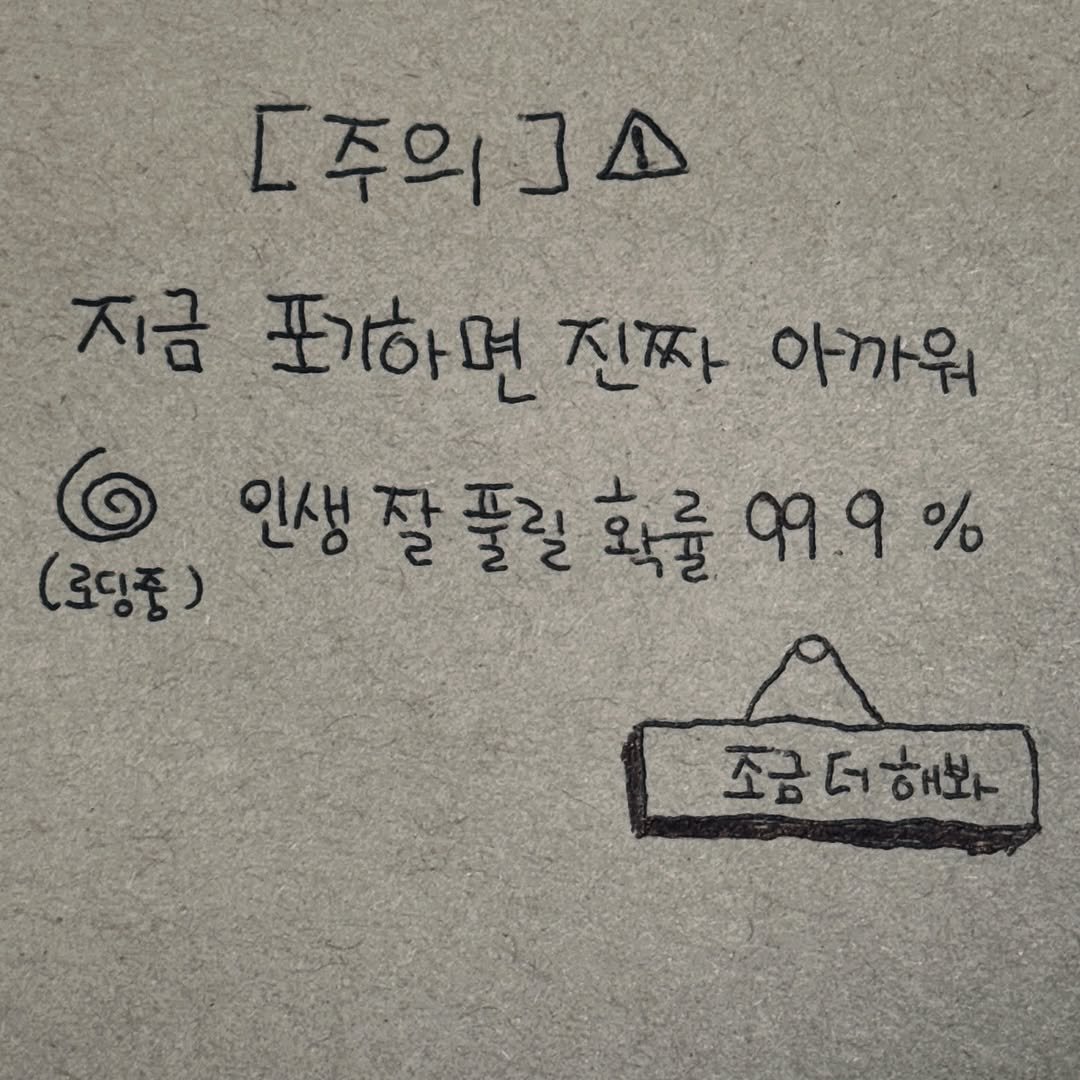 [주의] ⚠
지금 포기하면 진짜 아까워
인생 잘 풀릴 확률 99.9 %
(로딩중)
조금 더 해봐